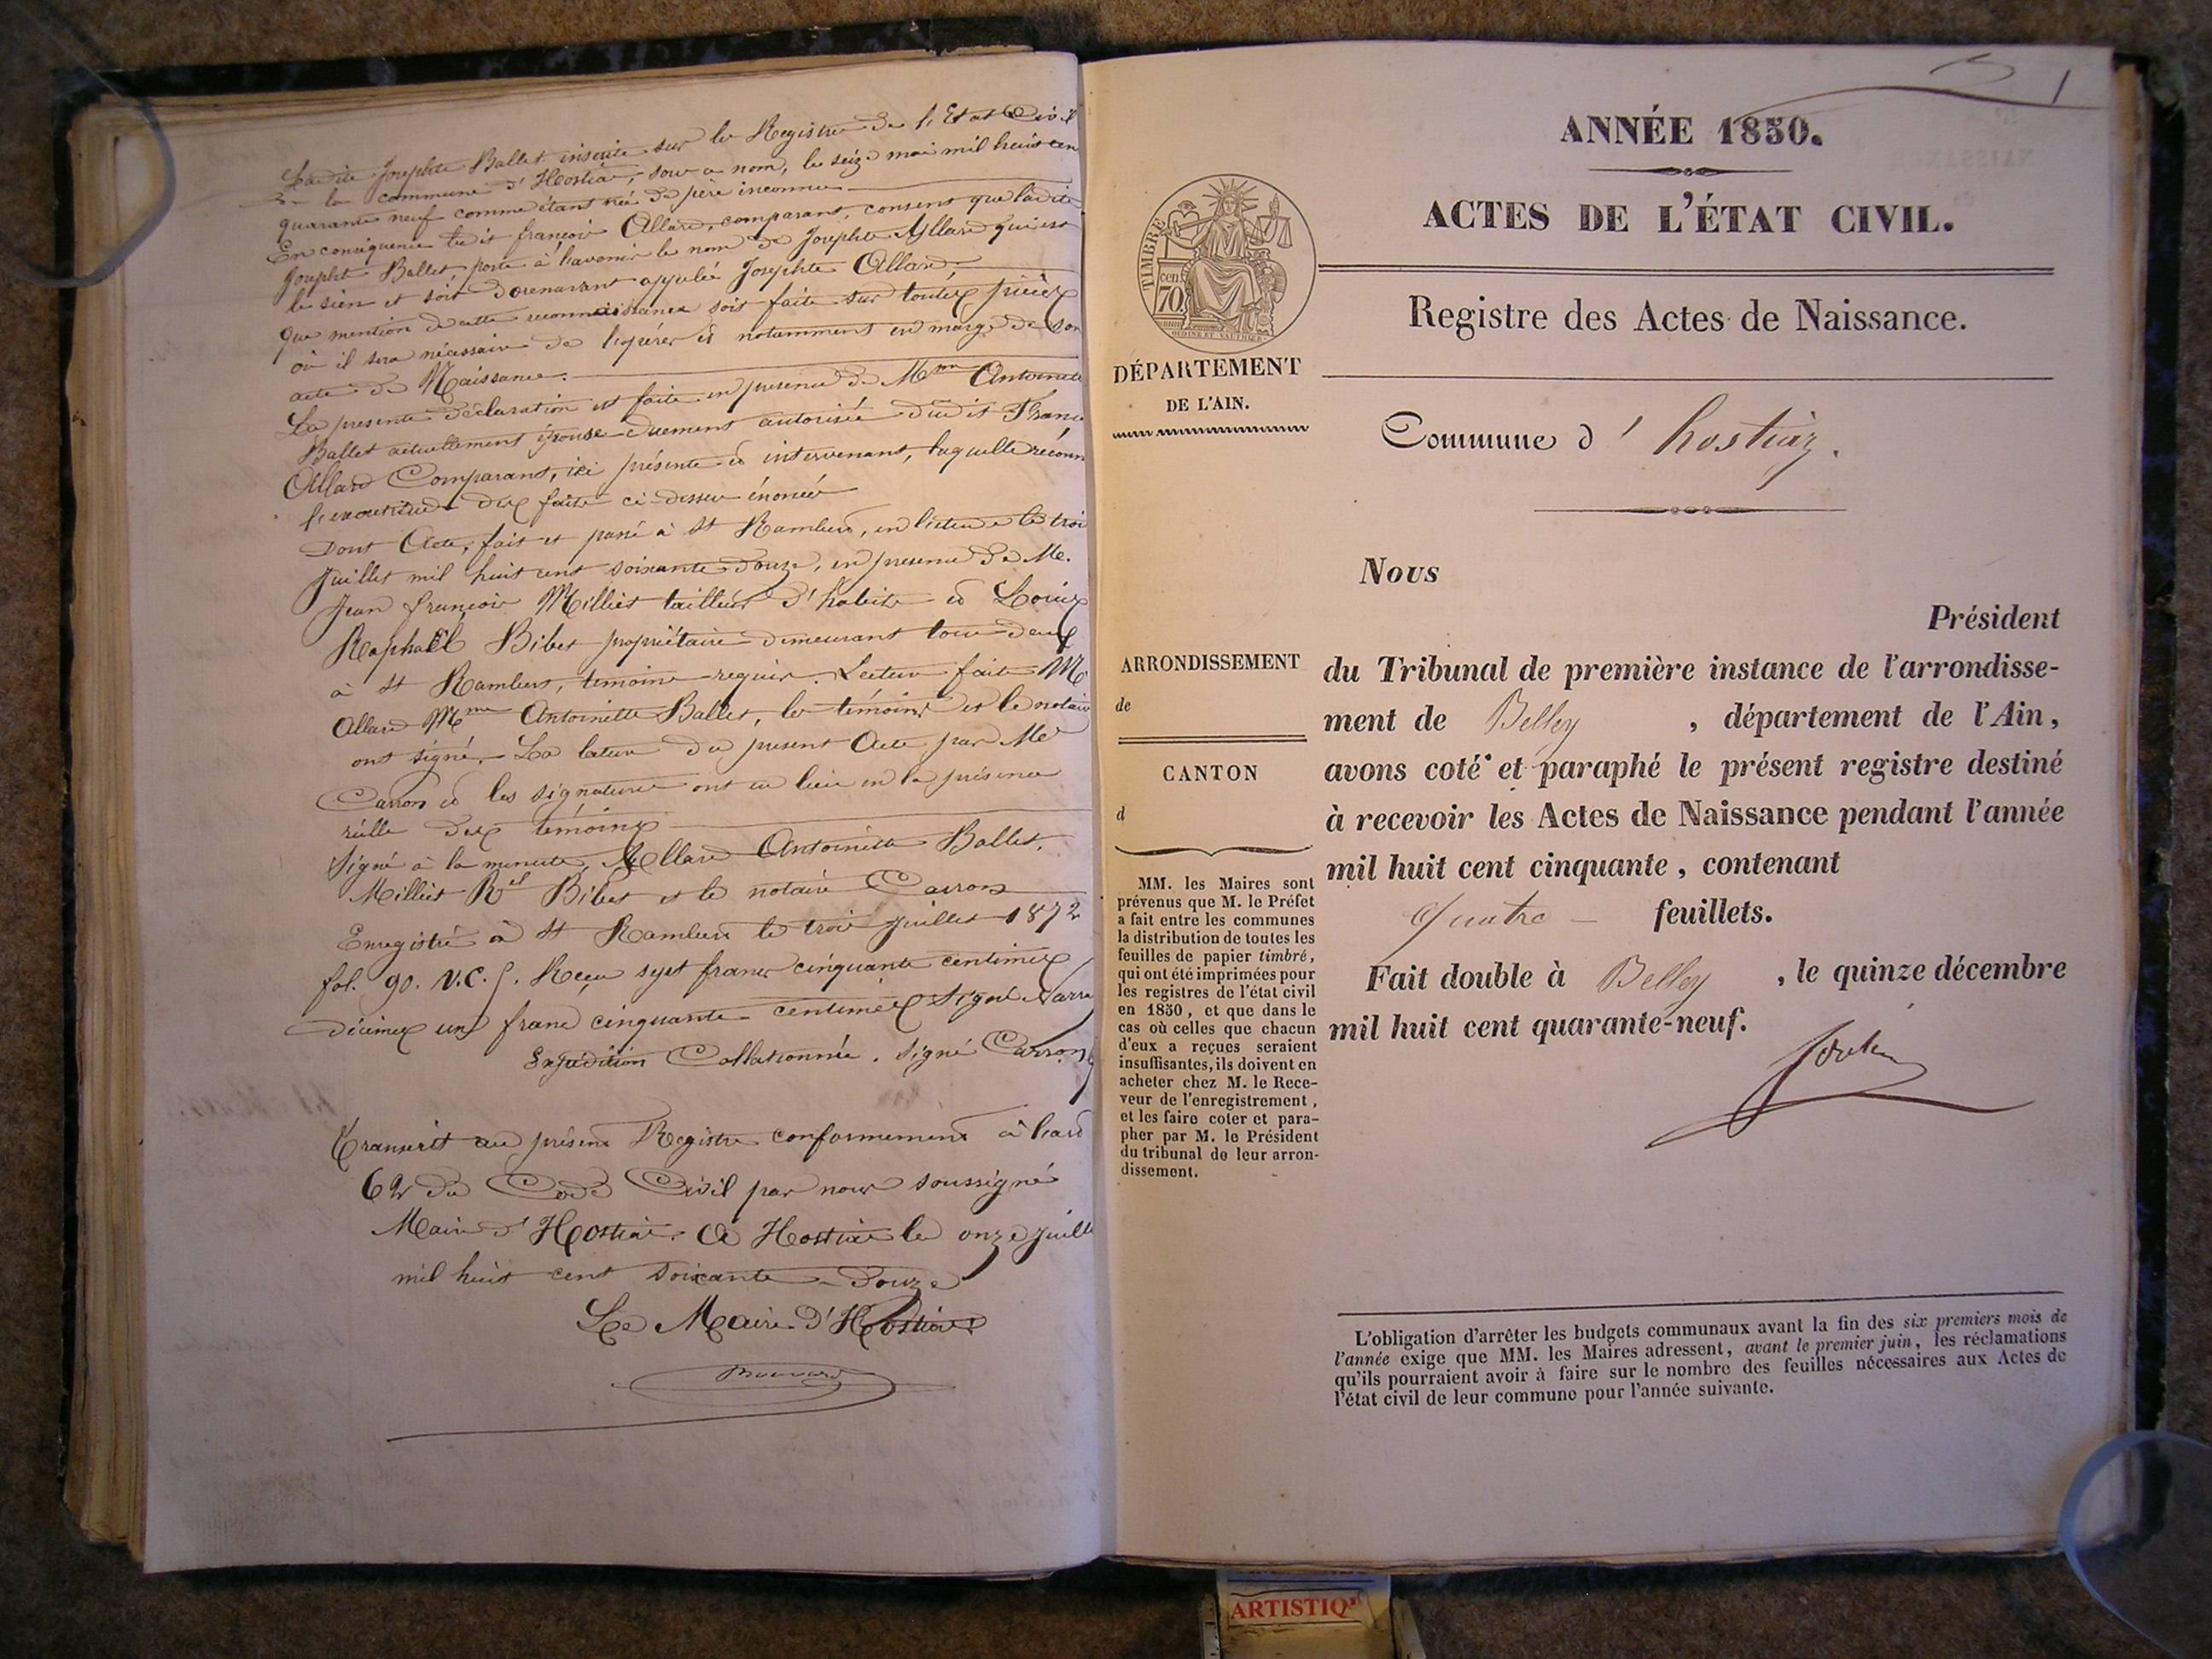 Ladite Josephte Ballet inscrite sur le Registre de l'Etat Civil
de la commune d'Hostiaz, sous ce nom, le seize mai mil huit cent
quarante neuf comme étant née de père inconnu
En conséquence ledit françois Allard, comparant, consent que ladite
Josephte Ballet, porte à l'avenir le nom de Josephte Allard qui est
le sien et soit dorenavant appelée Josephte Allard,
que mention de cette reconnaissance soit faite sur toutes pièces
où il sera nécessaire de l'opérer et notamment en marge de son
acte de Naissance.
La presente déclaration est faite en presence de Mme Antoinette
Ballet actuellement épouse duement autorisée dudit Franç
Allard Comparant, ici présente et intervenant, laquelle reconn
l'exactitude des faits ci-dessus énoncés
Dont Acte, fait et passé à St Rambert, en l'étude le trois
Juillet mil huit cent soixante douze, en presence de Me.
Jean françois Milliet tailleur d'habits et Louis
Raphaël Bibet propriétaire demeurant tous deux
à St Rambert, témoins requis. Lecture faite M
Allard Mme Antoinette Ballet, les témoins et le notaire
ont signé. La lecture du present Acte par Me
Carron et les signatures ont eu lieu en la présence
réelle des témoins
Signé à la minute, Allard Antoinette Ballet,
Milliet Rel Bibet et le notaire Carron
Enregistré à St Rambert le trois Juillet 1872
fol. 90. V. C. 5. Reçu sept francs cinquante centimes
décimes un franc cinquante centimes Signé
Expédition Collationnée. Signé Carron
Transcrit au présent Registre conformement à l'art
62 du Code Civil par nous soussigné
Maire d'Hostiaz. A Hostiaz le onze juille
mil huit cent soixante douze
Le Maire d'Hostiaz
1
ANNÉE 1850.
ACTES DE L'ÉTAT CIVIL.
Registre des Actes de Naissance.
TIMBRE
70 cen
DÉPARTEMENT
DE L'AIN.
Commune d'hostiaz.
Nous
Président
ARRONDISSEMENT
de
CANTON
d
du Tribunal de première instance de l'arrondisse-
ment de Belley, département de l'Ain,
avons coté et paraphé le présent registre destiné
à recevoir les Actes de Naissance pendant l'année
mil huit cent cinquante, contenant
quatre feuillets.
Fait double à Belley, le quinze décembre
mil huit cent quarante-neuf.
MM. les Maires sont
prévenus que M. le Préfet
a fait entre les communes
la distribution de toutes les
feuilles de papier timbré,
qui ont été imprimées pour
les registres de l'état civil
en 1850, et que dans le
cas où celles que chacun
d'eux a reçues seraient
insuffisantes, ils doivent en
acheter chez M. le Rece-
veur de l'enregistrement,
et les faire coter et para-
pher par M. le Président
du tribunal de leur arron-
dissement.
L'obligation d'arrêter les budgets communaux avant la fin des six premiers mois de
l'année exige que MM. les Maires adressent, avant le premier juin, les réclamations
qu'ils pourraient avoir à faire sur le nombre des feuilles nécessaires aux Actes de
l'état civil de leur commune pour l'année suivante.
ARTISTIQ